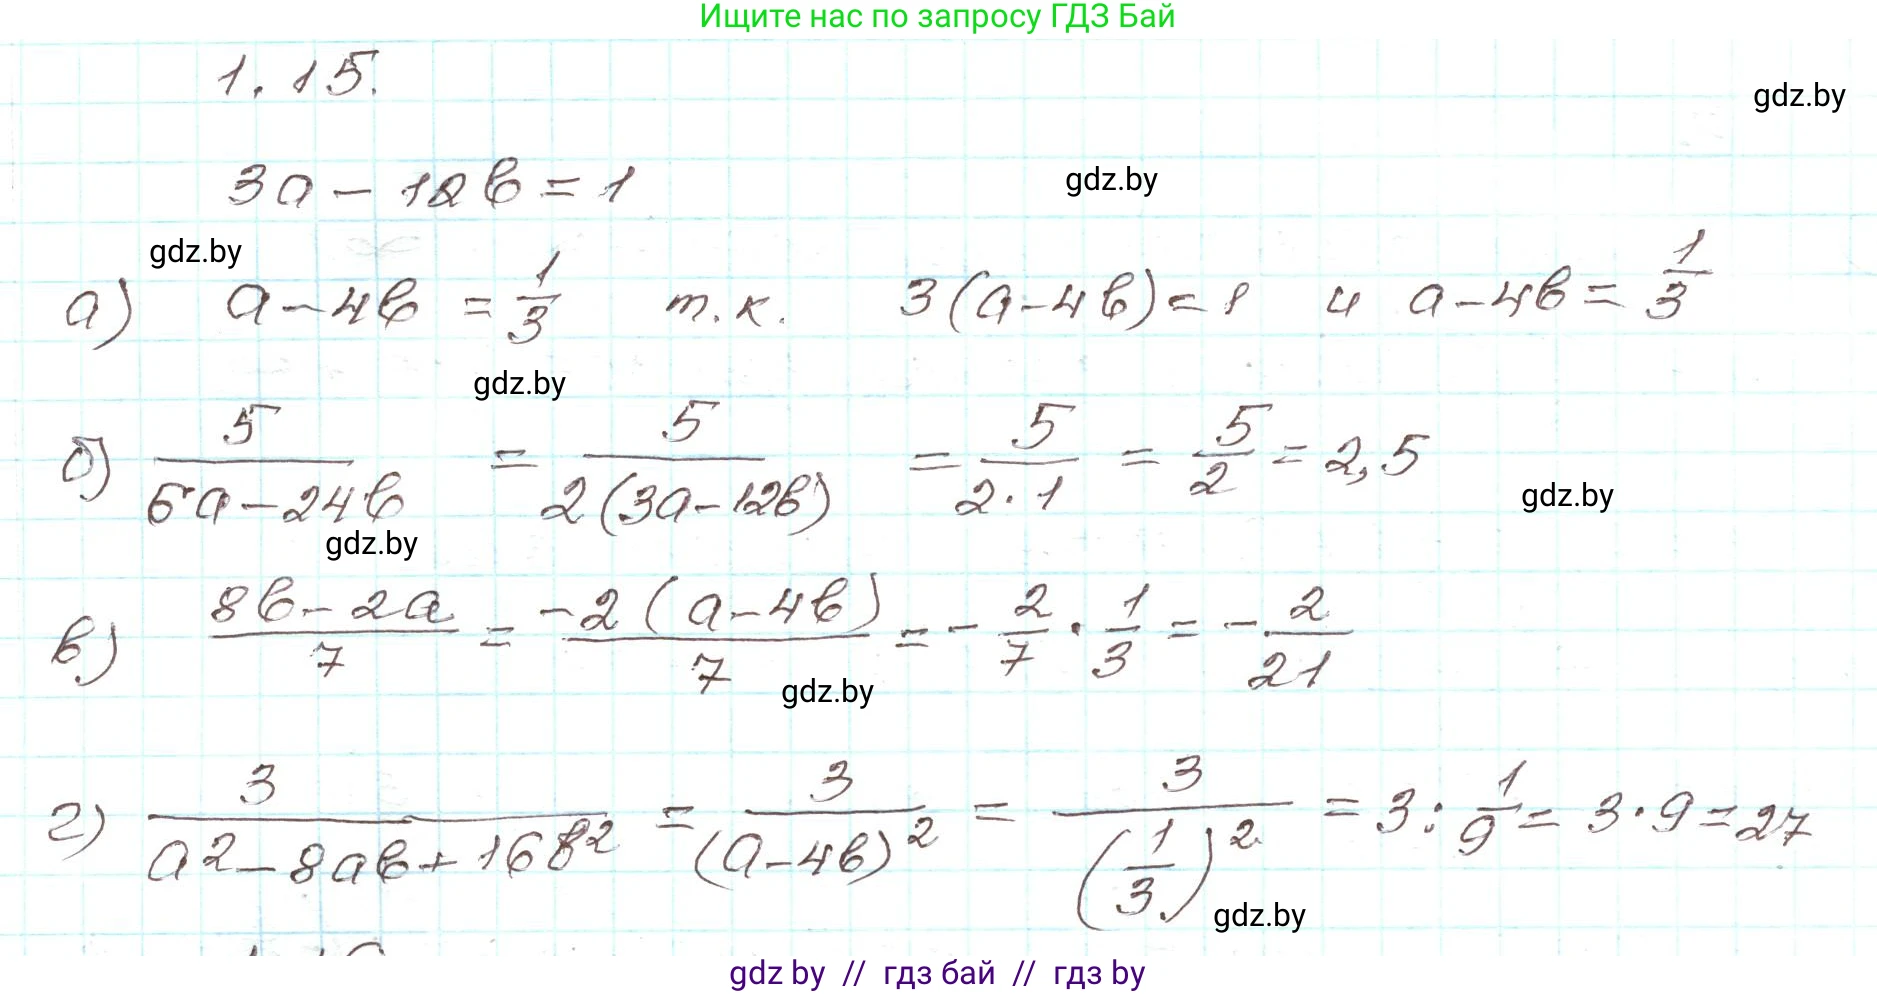 Ищите нас по запросу ГДЗ Бай
1.15.
gdz.by
3а - 12в = 1
gdz.by
gdz.by
а) а - 4в = 1/3 т.к. 3(а - 4в) = 1 и а - 4в = 1/3
gdz.by
б) 5/(6а - 24в) = 5/(2(3а - 12в)) = 5/(2·1) = 5/2 = 2,5
gdz.by
gdz.by
в) (8в - 2а)/7 = (-2(а - 4в))/7 = -2/7 · 1/3 = -2/21
gdz.by
г) 3/(а² - 8ав + 16в²) = 3/(а - 4в)² = 3/(1/3)² = 3 : 1/9 = 3·9 = 27
gdz.by
gdz by // гдз бай // гдз by